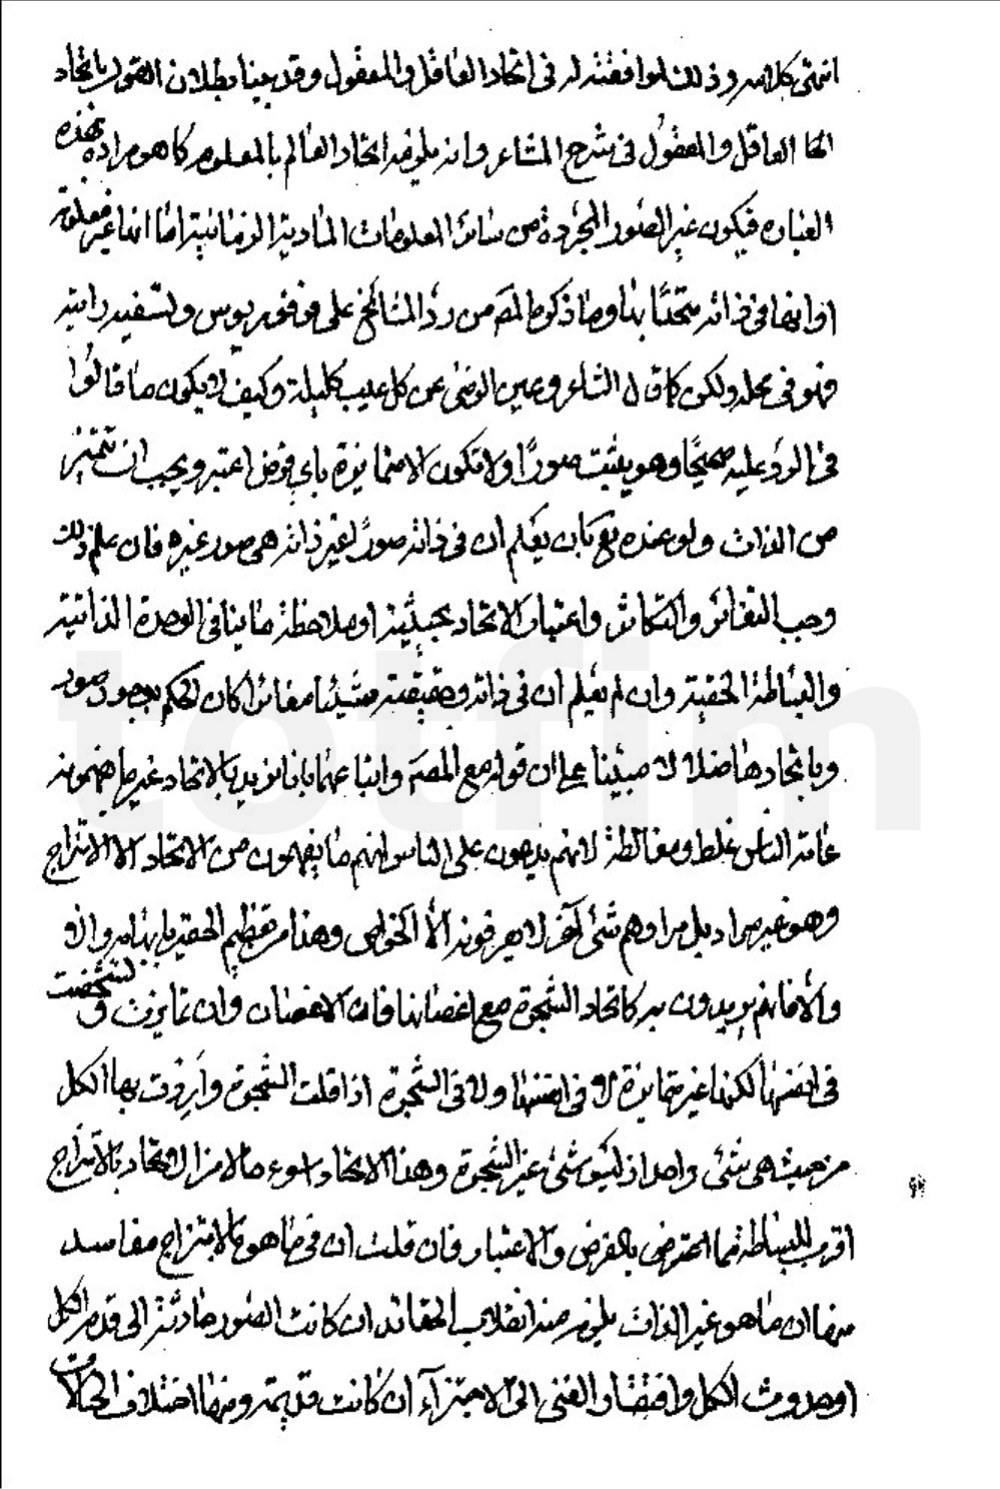 انتهى كلامه وذلك لموافقته له فى اتحاد العاقل والمعقول وقد بينا بطلان القول باتحاد
العاقل والمعقول فى شرح المشاعر وانه يلزمه اتحاد العالم بالمعلوم كما هو مراده بهذه
العباره فيكون غير الصور المجردة من سائر المعلومات المادية الزمانية اما انها غير معلومة
او انها فى ذاته متحدا بها وما ذكره المصم من رد المشائخ على فرفوريوس وتسفيه رايه
فهو فى محله ولكن كما قال الشاعر وعين الرضى عن كل عيب كليلة وكيف لا يكون ما قالوا
فى الرد عليه صحيحا وهو يثبت صورا ولا تكون الا متمايزة باى فرض اعتبر ويجب ان تتميز
من الذات ولو عنده تع بان يعلم ان فى ذاته صور لغير ذاته هى صور غيره فان علم ذلك
وجب التغائر والتكاثر واعتبار الاتحاد بحيثية او ملاحظة ما ينافى الوحدة الذاتية
والبساطة الحقية وان لم يعلم ان فى ذاته وحقيقته شيئا مغائرا كان الحكم بوجود صور
وباتحادها ضلالا مبينا على ان قوله مع المصم واتباعهما بانا نريد بالاتحاد غير ما يفهمونه
عامة الناس غلط ومغالطة لانهم يدعون على الناس انهم ما يفهمون من الاتحاد الا الامتزاج
وهو غير مراد بل مرادهم شئ آخر لا يعرفونه الا الخواص وهذا من تعظيم الحقير
والا فانهم يريدون به كاتحاد الشجرة مع اغصانها فان الاغصان وان تمايزت وتشخصت
فى انفسها لكنها غير متمايزة لا فى انفسها ولا فى الشجرة اذا قلت الشجرة واردت بها الكل
من حيث هى شئ واحد اذ ليس شئ غير الشجرة وهذا الاتحاد اسوء حالا من الاتحاد بالامتزاج
اقرب للبساطة مما افترض بالفرض والاعتبار فان قلت ان فى ما هو بالامتزاج مفاسد
منها ان ما هو غير الذات يلزم منه انقلاب الحقائق ان كانت الصور حادثة الى قدم الكل
او حدوث الكل وافتقار الغنى الى الاجزاء ان كانت قديمة ومنها اختلاف الحالات
totfim